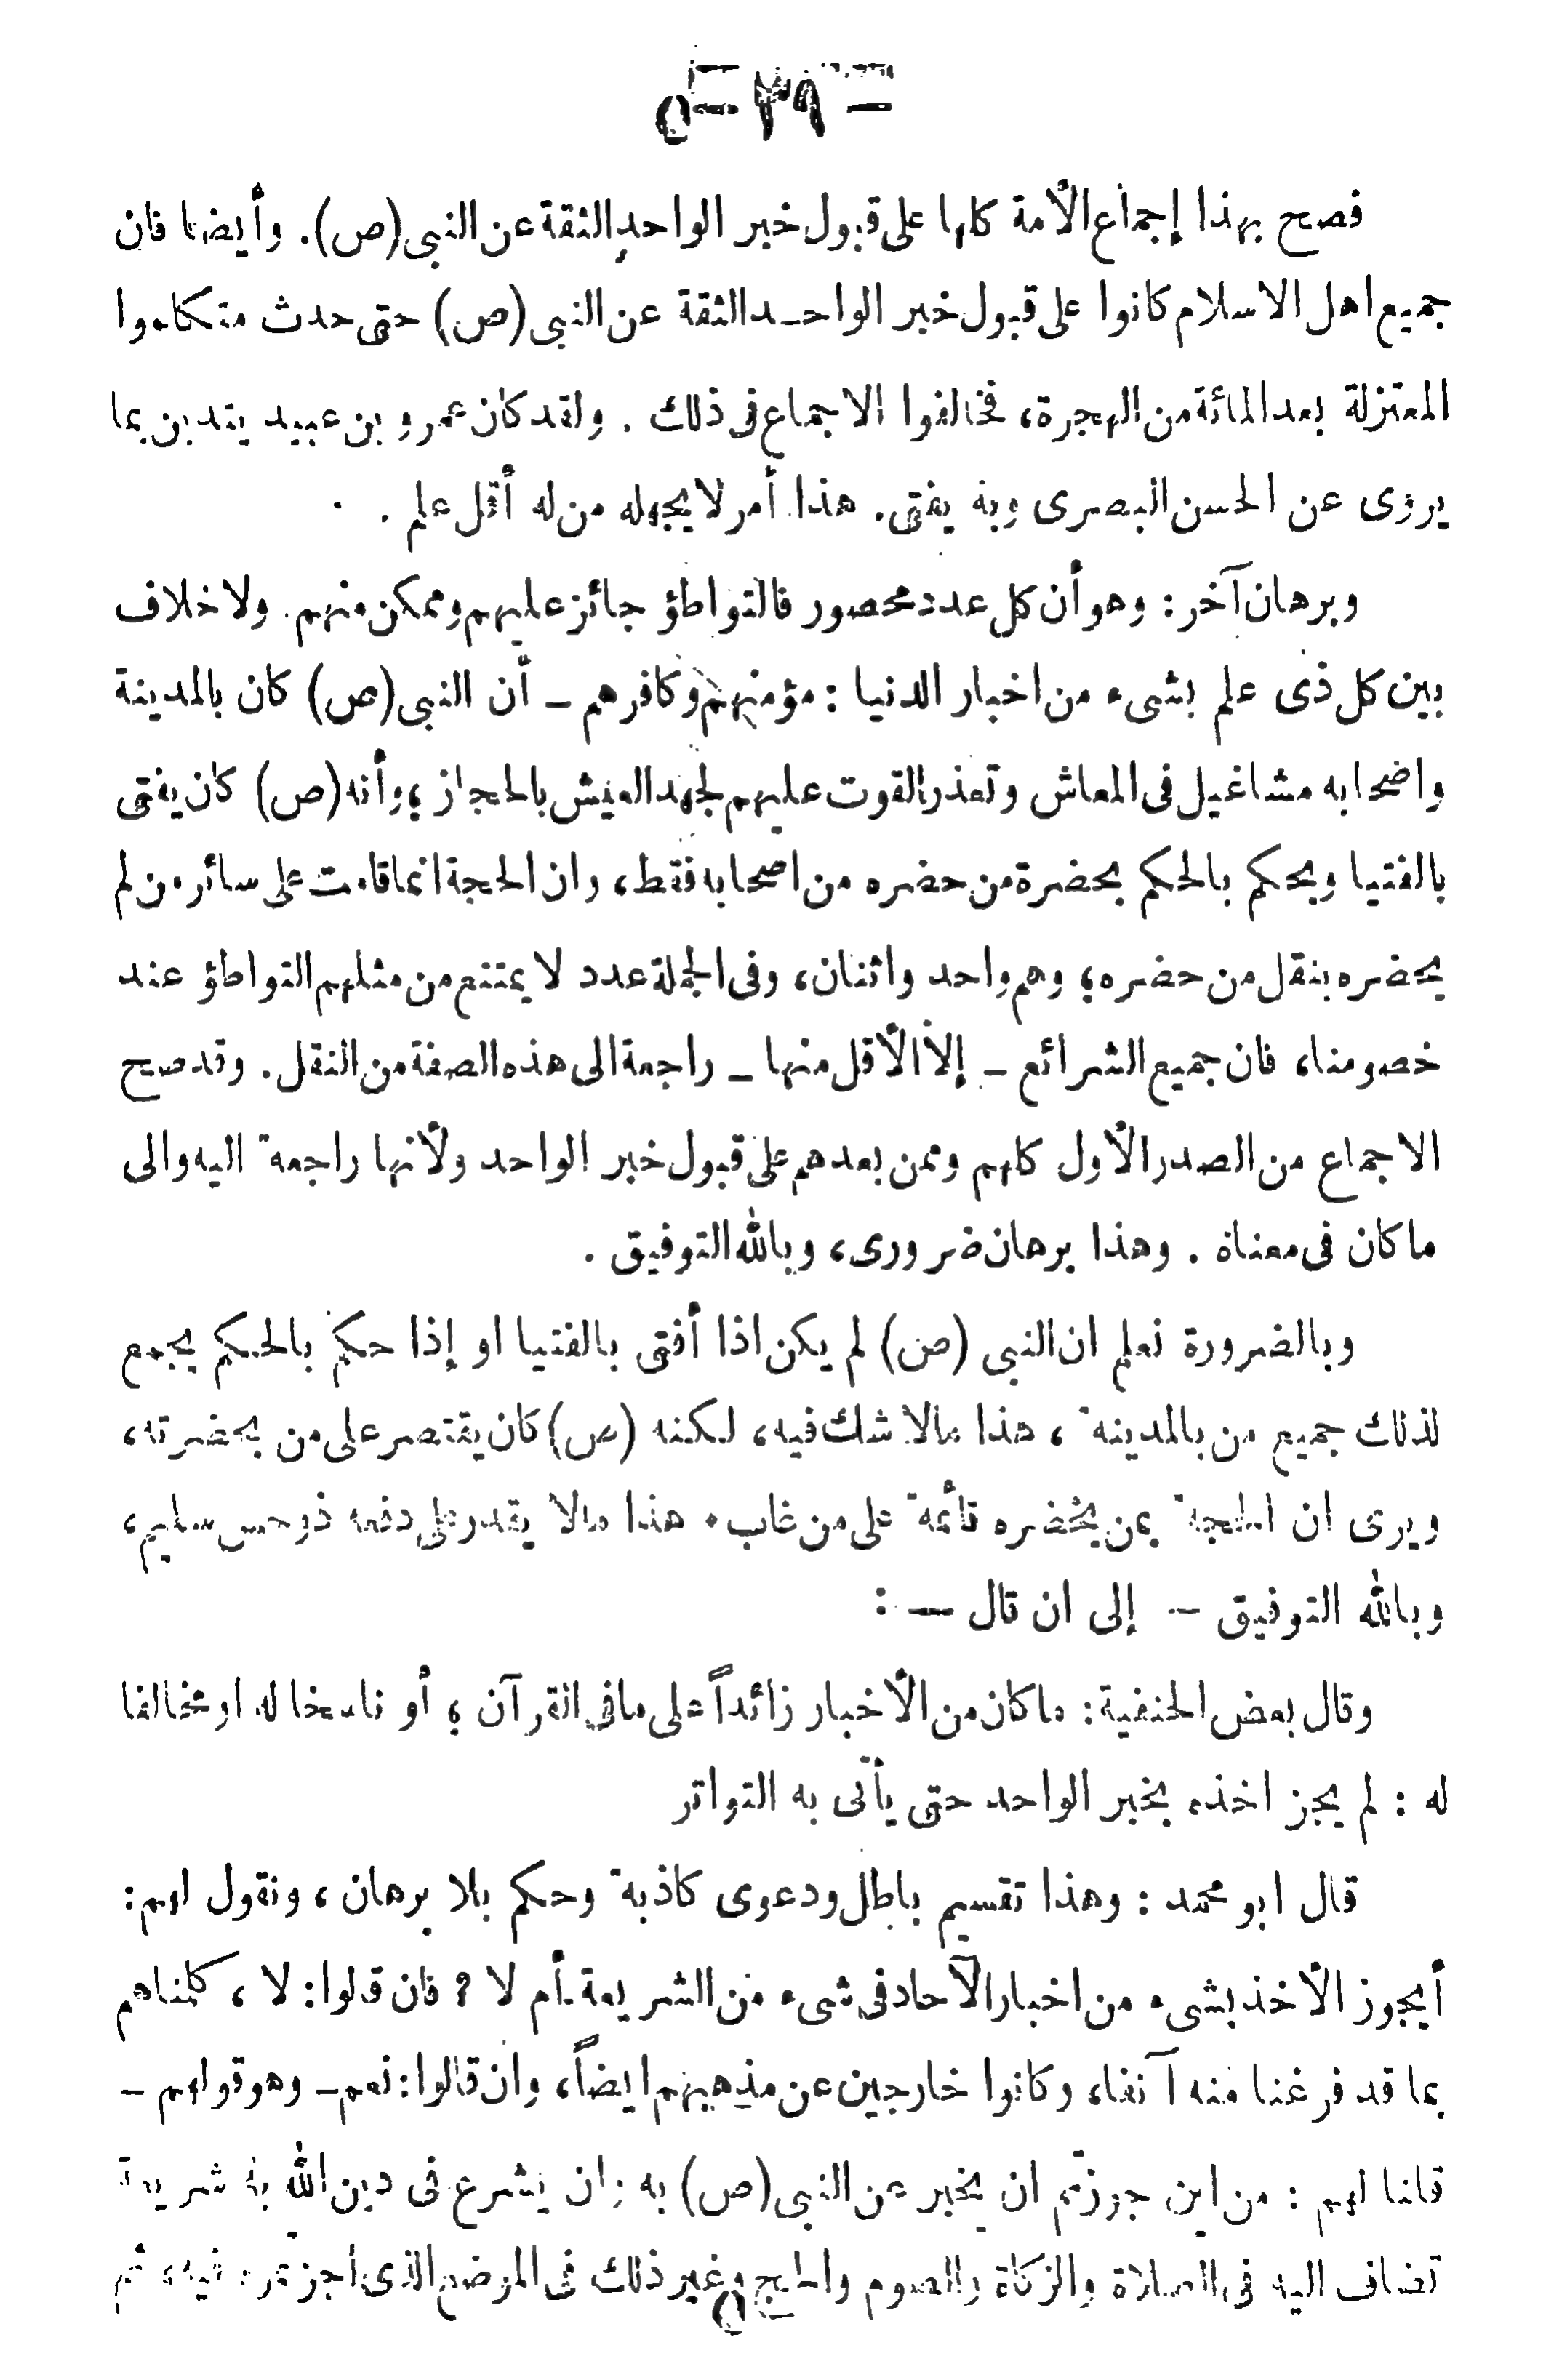 — ٣٩ —
فصح بهذا إجماع الأمة كلها على قبول خبر الواحد الثقة عن النبى (ص). وأيضا فان
جميع اهل الاسلام كانوا على قبول خبر الواحد الثقة عن النبى (ص) حتى حدث متكلموا
المعتزلة بعد المائة من الهجرة، فخالفوا الاجماع فى ذلك . ولقد كان عمرو بن عبيد يتدين بما
يروى عن الحسن البصرى وبه يفتى. هذا أمر لا يجهله من له أقل علم .
وبرهان آخر : وهو أن كل عدد محصور فالتواطؤ جائز عليهم وممكن منهم. ولا خلاف
بين كل ذى علم بشىء من اخبار الدنيا : مؤمنهم وكافرهم – أن النبى (ص) كان بالمدينة
واصحابه مشاغيل فى المعاش وتعذر القوت عليهم لجهد العيش بالحجاز ؛ وأنه (ص) كان يفتى
بالفتيا ويحكم بالحكم بحضرة من حضره من اصحابه فقط، وان الحجة انما قامت على سائر من لم
يحضره بنقل من حضره؛ وهم واحد واثنان، وفى الجملة عدد لا يمتنع من مثلهم التواطؤ عند
خصومنا، فان جميع الشرائع – إلا الأقل منها – راجعة الى هذه الصفة من النقل. وقد صح
الاجماع من الصدر الأول كلهم وممن بعدهم على قبول خبر الواحد ولأنها راجعة اليه والى
ما كان فى معناه . وهذا برهان ضرورى، وبالله التوفيق .
وبالضرورة نعلم ان النبى (ص) لم يكن اذا أفتى بالفتيا او إذا حكم بالحكم يجمع
لذلك جميع من بالمدينة ، هذا مالا شك فيه، لكنه (ص) كان يقتصر على من بحضرته،
ويرى ان الحجة بمن يحضره قائمة على من غاب. هذا مالا يقدر على دفعه ذو حس سليم،
وبالله التوفيق – إلى ان قال — :
وقال بعض الحنفية : ما كان من الأخبار زائداً على مافى القرآن ؛ أو ناسخا له او مخالفا
له : لم يجز اخذه بخبر الواحد حتى يأتى به التواتر
قال ابو محمد : وهذا تقسيم باطل ودعوى كاذبة وحكم بلا برهان ، ونقول لهم :
أيجوز الأخذ بشىء من اخبار الآحاد فى شىء من الشريعة أم لا ? فان قالوا : لا ، كلمناهم
بما قد فرغنا منه آنفا، وكانوا خارجين عن مذهبهم ايضاً، وان قالوا : نعم – وهو قولهم –
قلنا لهم : من اين جوزتم ان يخبر عن النبى (ص) به وان يشرع فى دين الله به شريعة
تضاف اليه فى الصلاة والزكاة والصوم والحج وغير ذلك فى الموضع الذى اجزتموه فيه، ثم